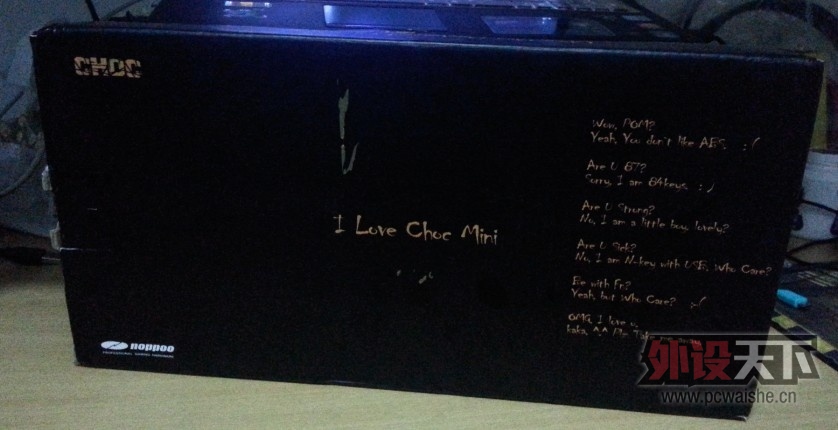 CHOC
I Love Choc Mini
Wow, POM?
Yeah, You don't like ABS. :/
Are U 67?
Sorry, I am 64keys. :/
Are U Strong?
No, I am a little boy, lovely?
Are U Sick?
No, I am N-key with USB, Who Care?
Be with Fn?
Yeah, but Who Care?
OMG, I love u,
kaka, ^.^
noppoo
外设天下
www.pcwaishe.cn